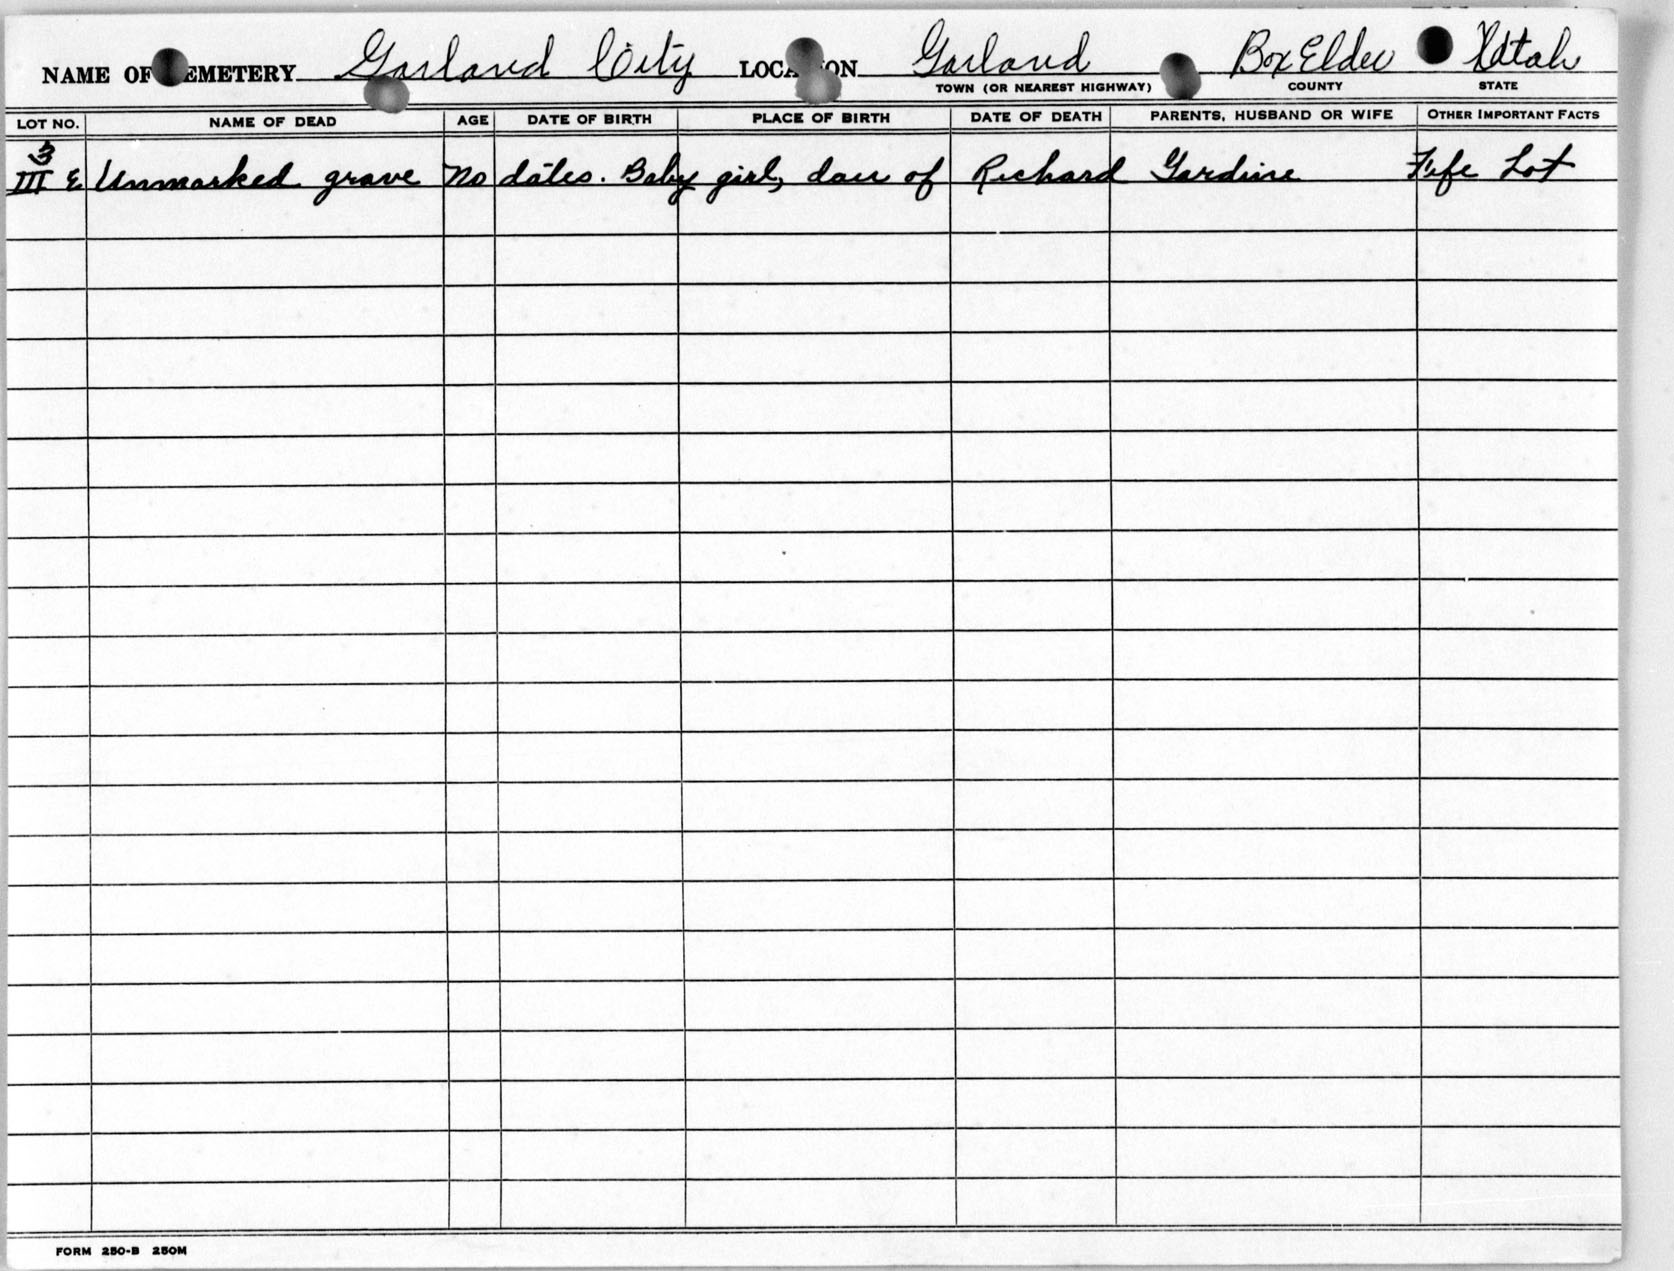 NAME OF CEMETERY Garland City LOCATION Garland Box Elder Utah
TOWN (OR NEAREST HIGHWAY) COUNTY STATE
LOT NO. NAME OF DEAD AGE DATE OF BIRTH PLACE OF BIRTH DATE OF DEATH PARENTS, HUSBAND OR WIFE OTHER IMPORTANT FACTS
3
III E Unmarked grave No dates. Baby girl, dau of Richard Gardine Fife Lot
FORM 250-B 250M